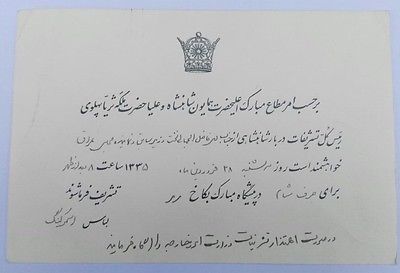 برحسب امر مطاع مبارک اعلیحضرت همایون شاهنشاه و علیاحضرت ملکه ثریا پهلوی
رئیس کل تشریفات دربار شاهنشاهی از جناب
خواهشمند است روز شنبه ۲۸ فروردین ماه ۱۳۳۵ ساعت ۸ بعد از ظهر
برای صرف شام در پیشگاه مبارک بکاخ تشریف فرما شوند
لباس اسموکینگ
در صورت اعتذار تشریفات وزارت امور خارجه را آگاه فرمایند